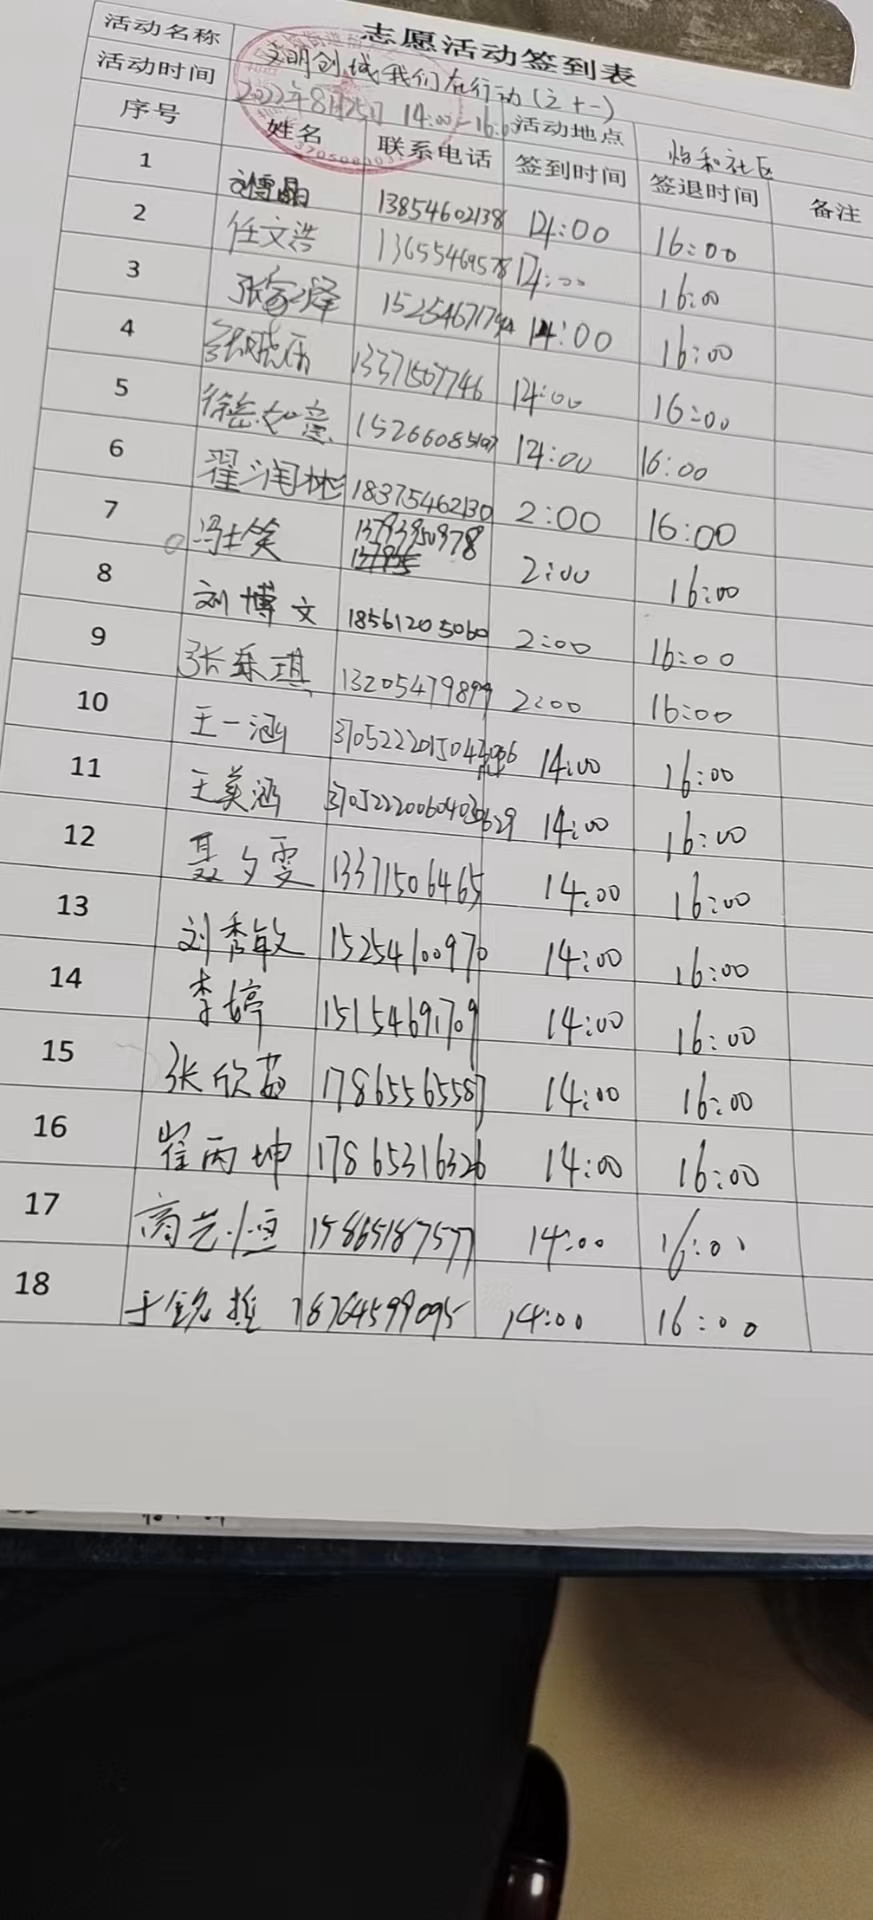 志愿活动签到表
活动名称 文明创城我们在行动(之十一)
活动时间 2022年8月25日 14:00-16:00 活动地点 怡和社区
序号 姓名 联系电话 签到时间 签退时间 备注
1 刘雪晶 13854602138 14:00 16:00
2 任文浩 13655469578 14:00 16:00
3 张家泽 14:00 16:00
4 张晓雨 13371507746 14:00 16:00
5 徐岳如意 15266085197 14:00 16:00
6 翟润彬 18375462130 2:00 16:00
7 冯士笑 13793950978 2:00 16:00
8 刘博文 18561205060 2:00 16:00
9 张乐琪 2:00 16:00
10 王一涵 14:00 16:00
11 王英涵 14:00 16:00
12 聂夕雯 13371506465 14:00 16:00
13 刘秀敏 15254100970 14:00 16:00
14 李婷 15154691709 14:00 16:00
15 张欣茹 17865565587 14:00 16:00
16 崔丙坤 17865316326 14:00 16:00
17 商艺恒 15865187577 14:00 16:00
18 于铭 18764599095 14:00 16:00